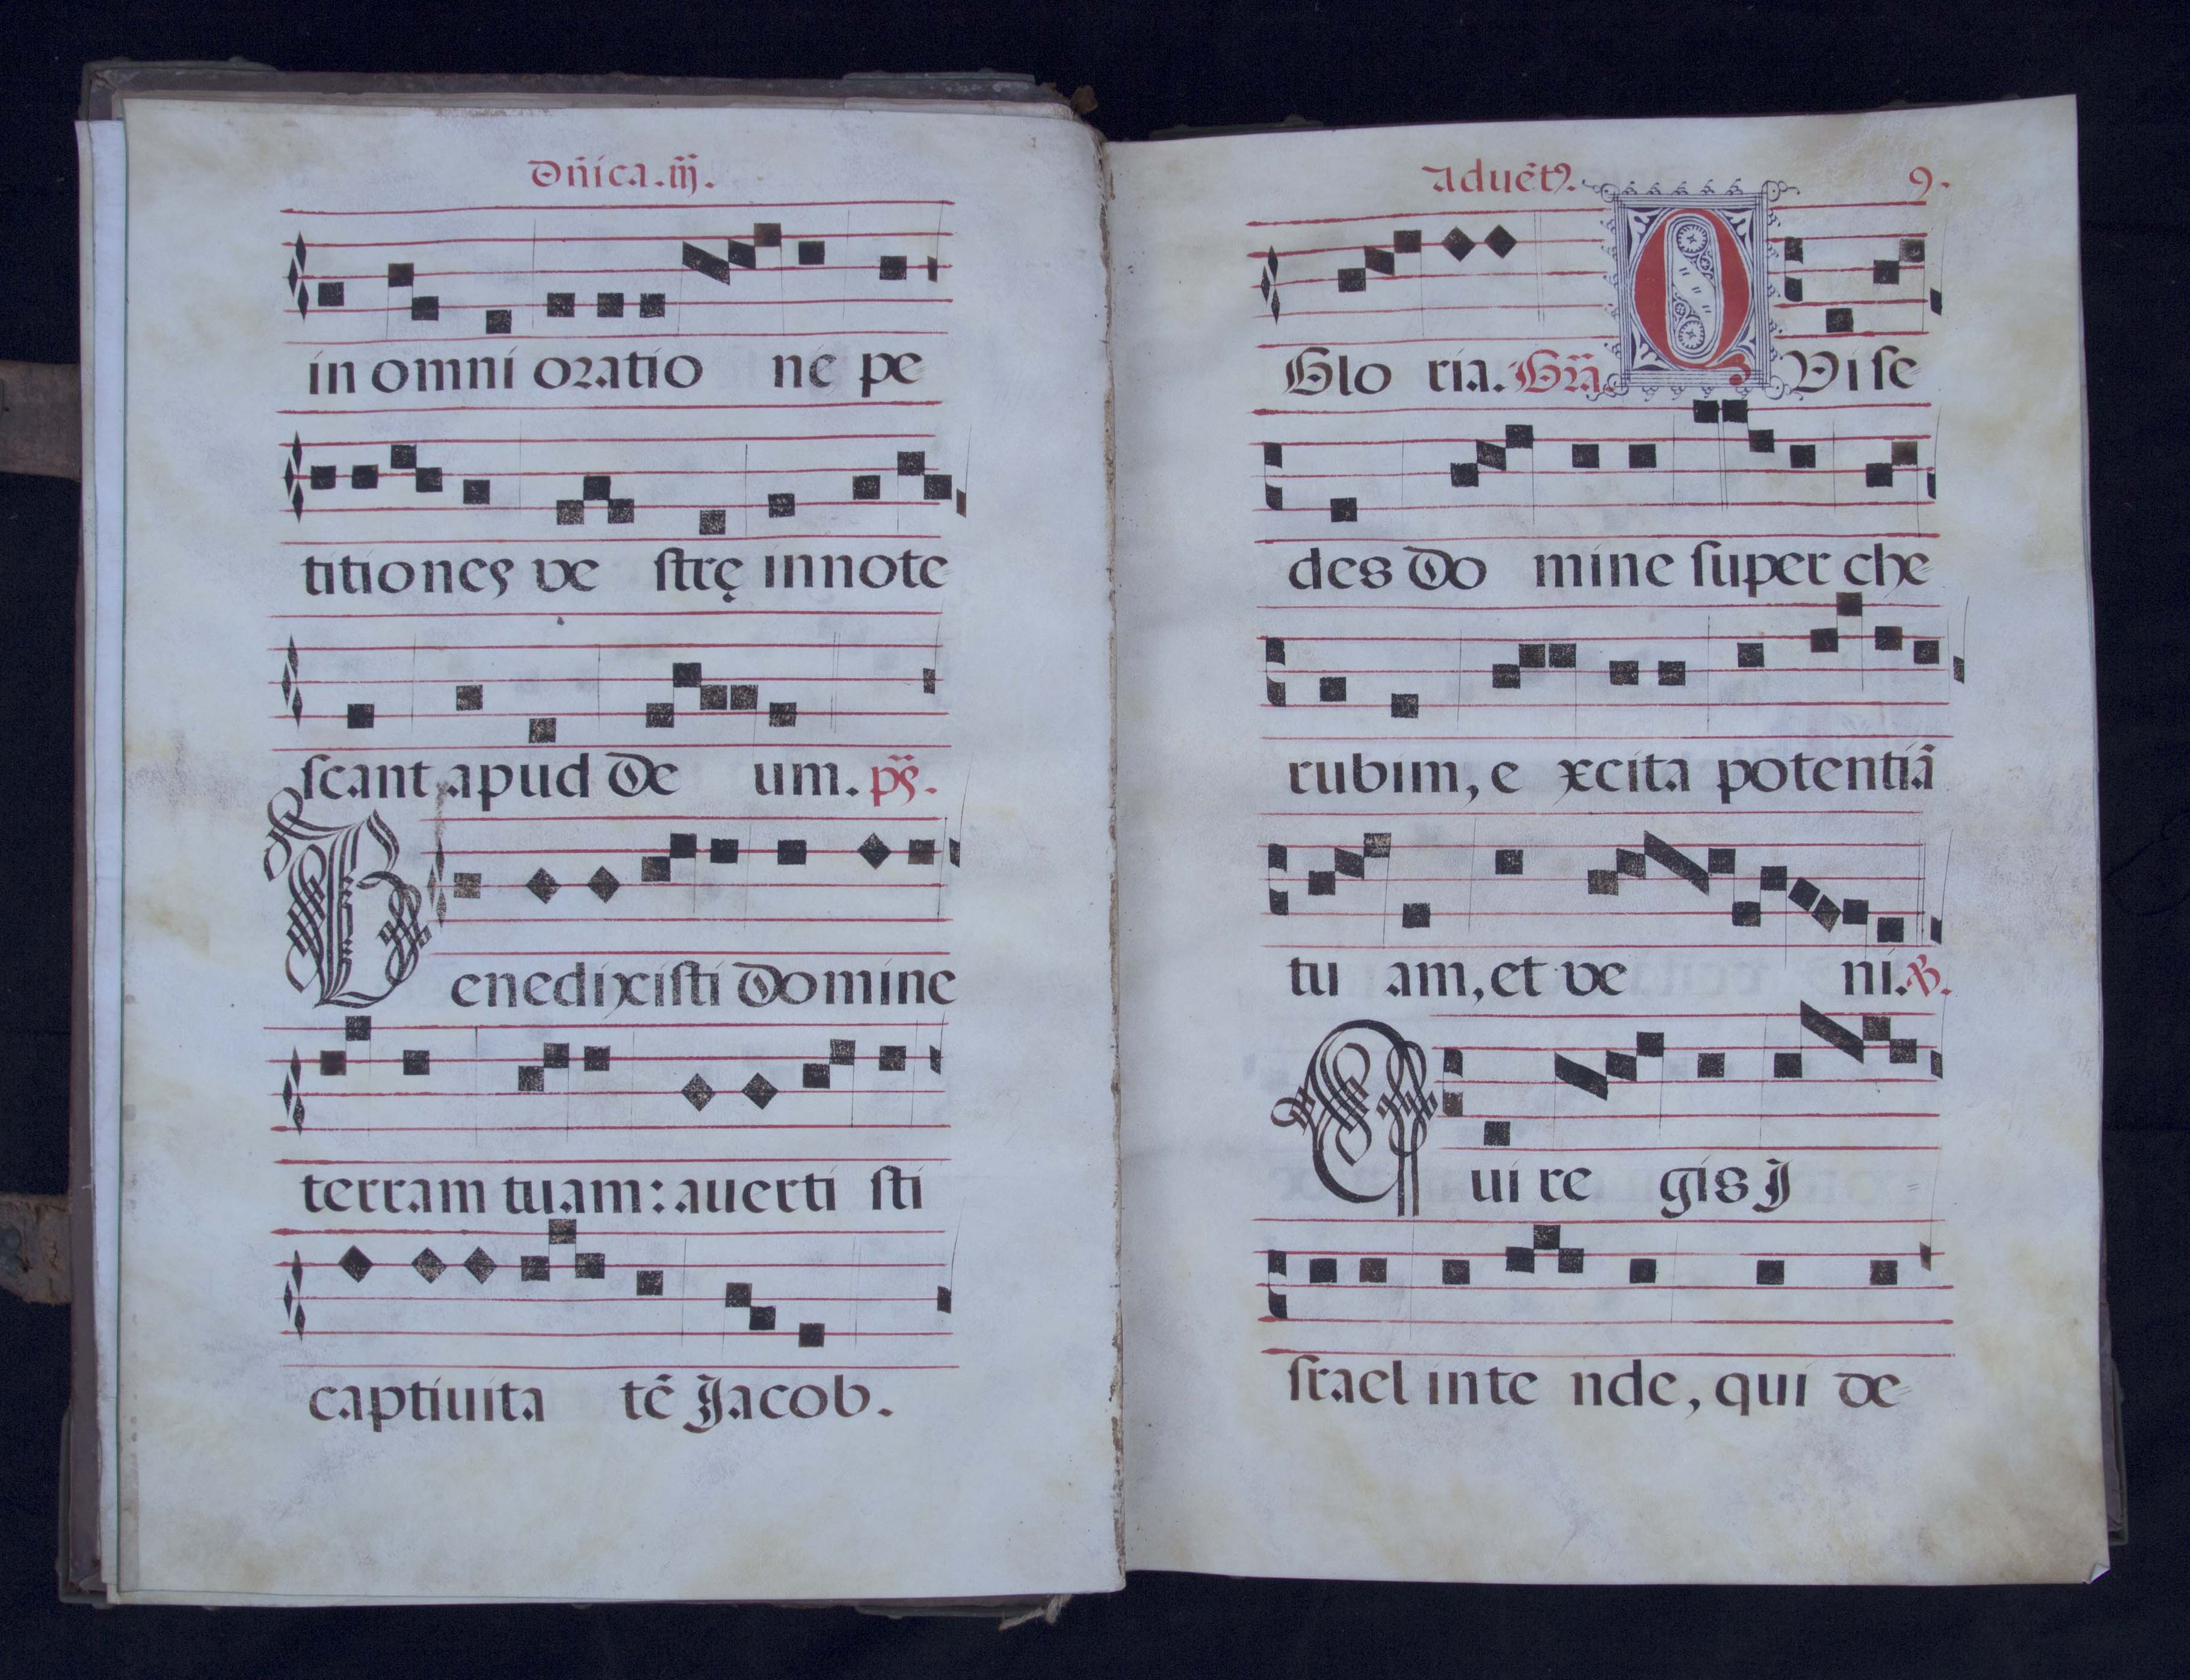 Dñica.iij.
in omni oratio ne pe
titiones ve ſtrę innote
ſcant apud De um. ps̃.
Benedixiſti Domine
terram tuam: auerti ſti
captiuita tē Jacob.
Aduēt9. 9.
Glo ria. Gr̃a. QVi ſe
des Do mine ſuper che
rubim, e xcita potentiā
tu am, et ve ni. ℣.
Qui re gis J
ſrael inte nde, qui de